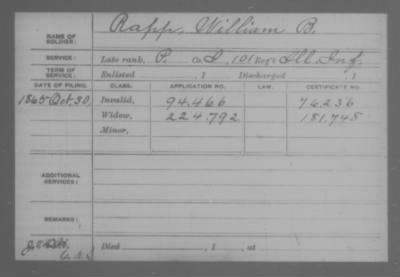 NAME OF SOLDIER: Rapp, William B.
SERVICE: Late rank, P. Co. I, 101 Reg't Ill. Inf.
TERM OF SERVICE: Enlisted , 1 Discharged , 1
DATE OF FILING. CLASS. APPLICATION NO. LAW. CERTIFICATE NO.
1865 Oct. 30, Invalid, 94.466 76.236
Widow, 224.792 181.748
Minor,
ADDITIONAL SERVICES:
REMARKS:
Died , 1 , at